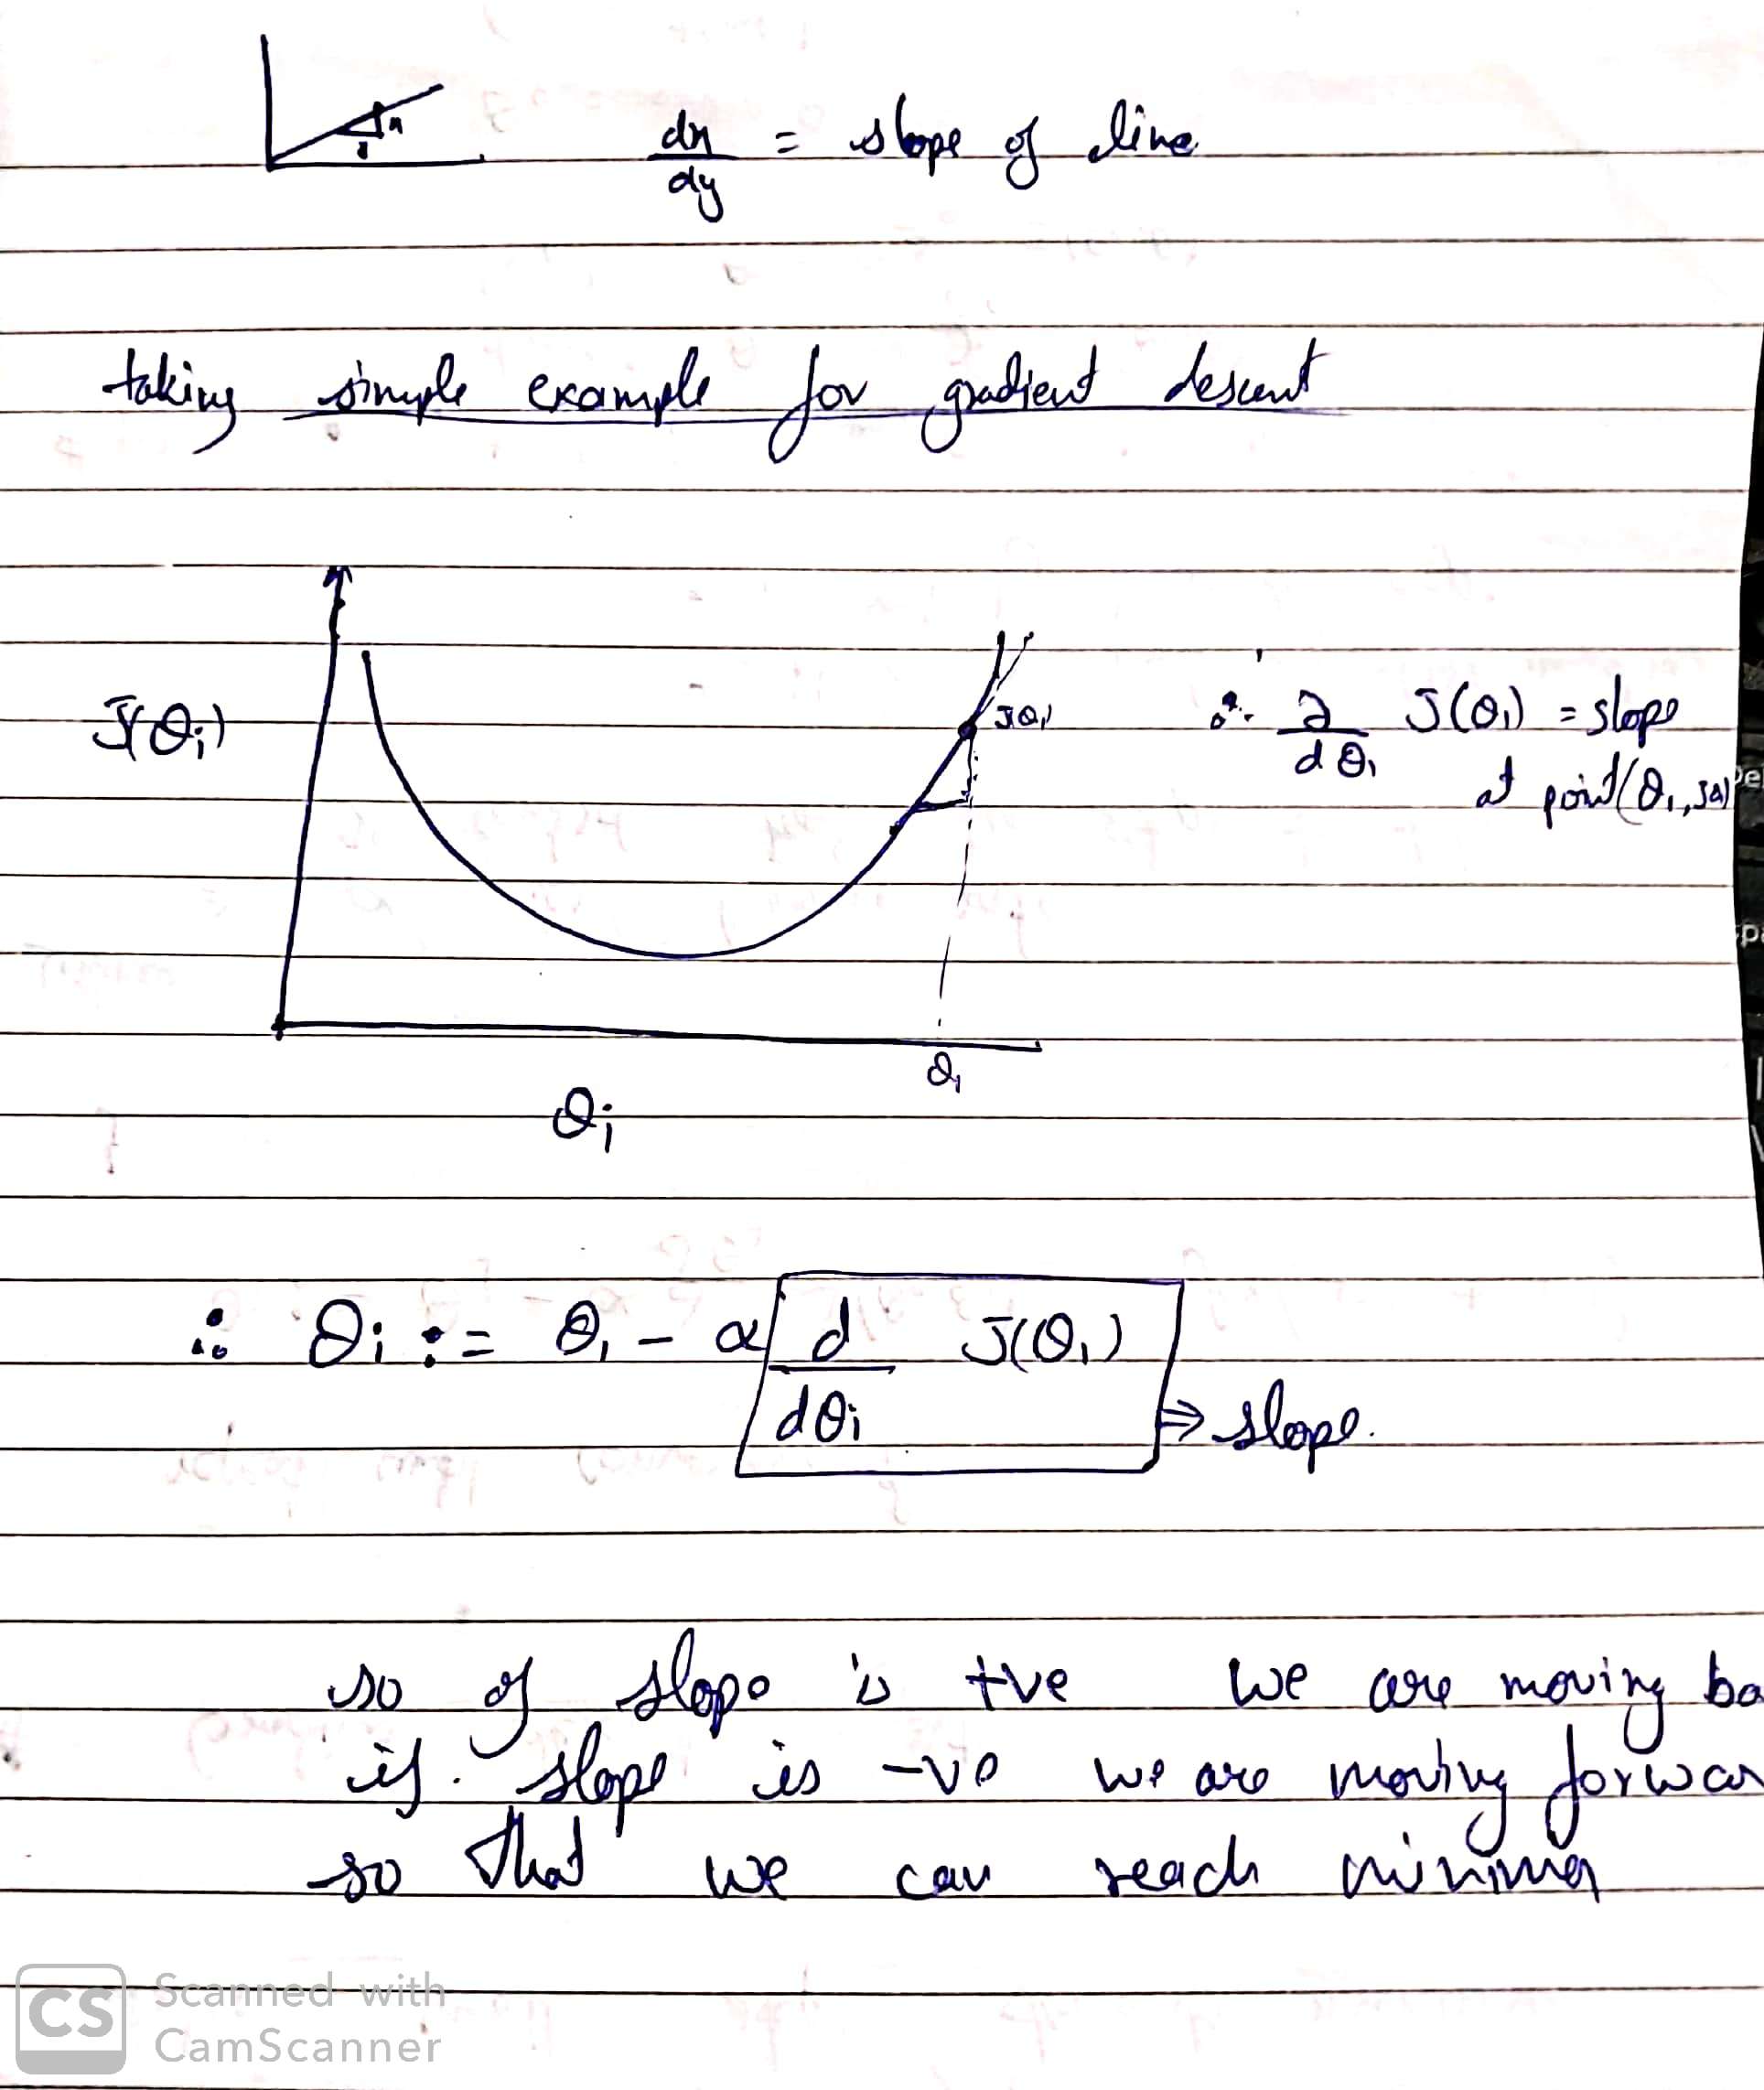 dx/dy = slope of line
taking simple example for gradient descent
J(θi)
Jθ1
∴ ∂/dθ1 J(θ1) = slope
at point (θ1, Jθ1)
θ1
θi
∴ θi := θ1 - α d/dθi J(θ1)
⇒ slope.
so if slope is +ve we are moving ba
if slope is -ve we are moving forwar
so that we can reach minima
CS Scanned with
CamScanner